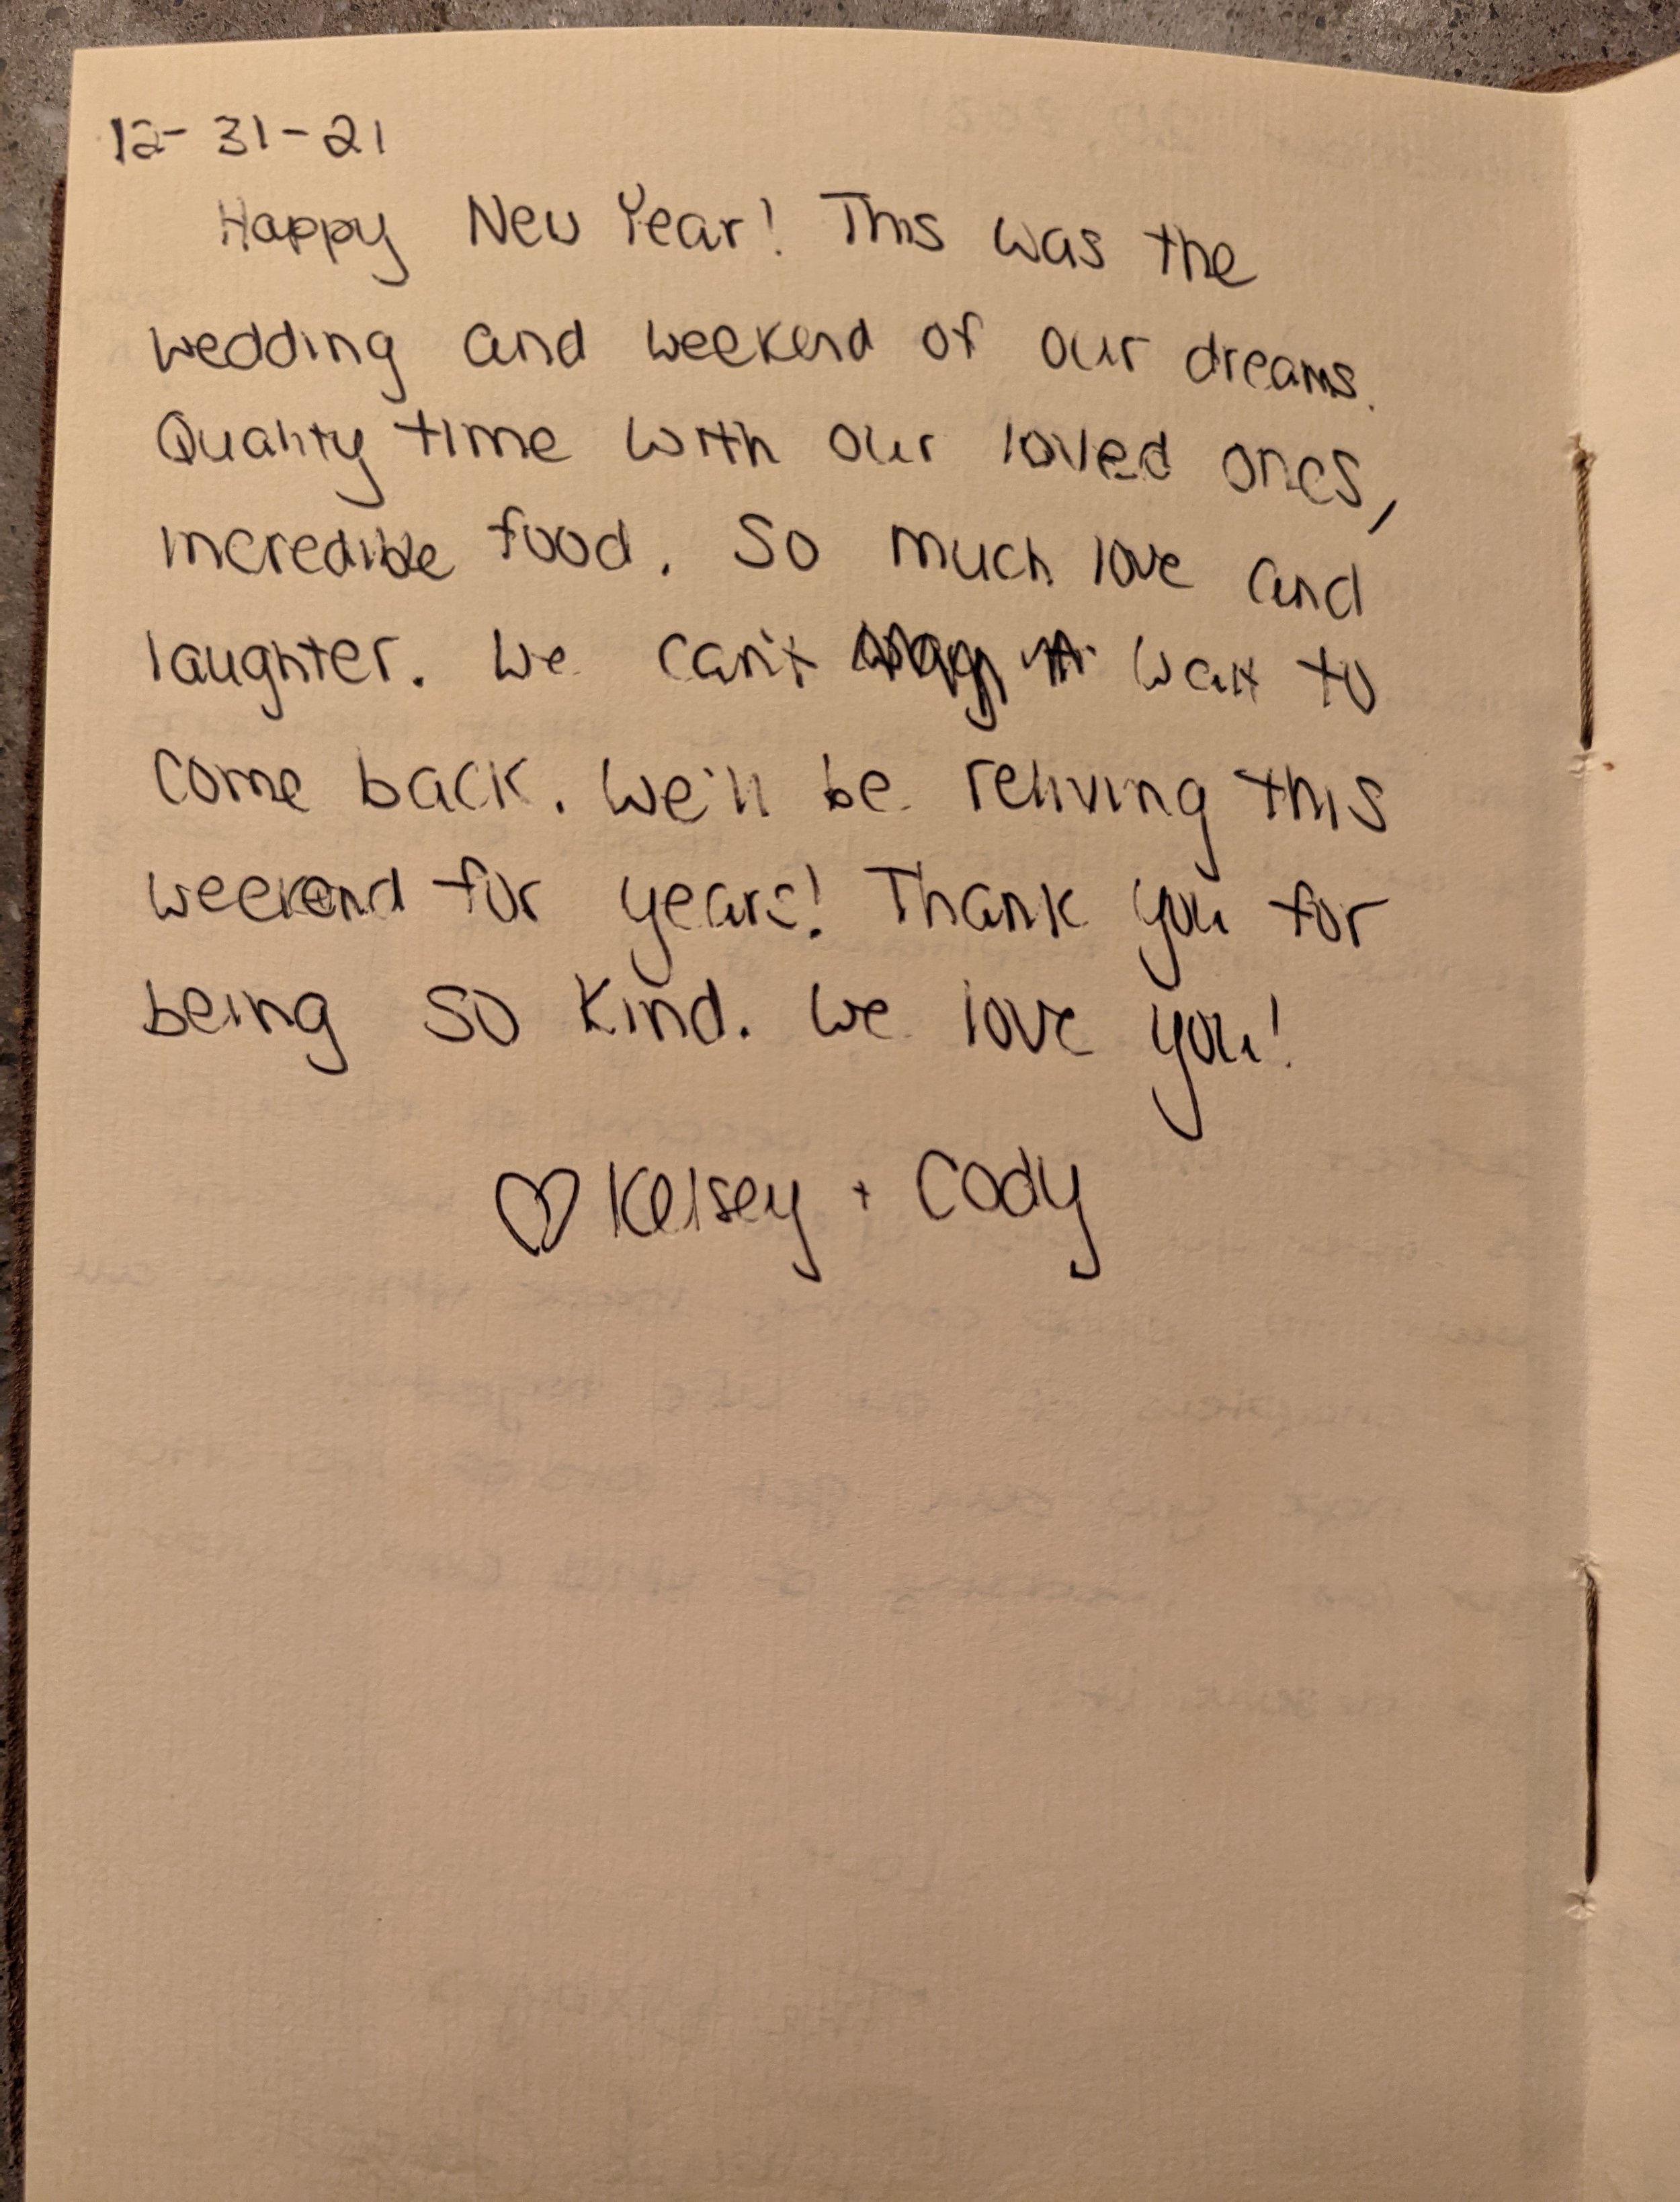 12-31-21
Happy New Year! This was the
wedding and weekend of our dreams.
Quality time with our loved ones,
incredible food. So much love and
laughter. We can't wait to
come back. We'll be reliving this
weekend for years! Thank you for
being so kind. We love you!
♡ Kelsey + Cody